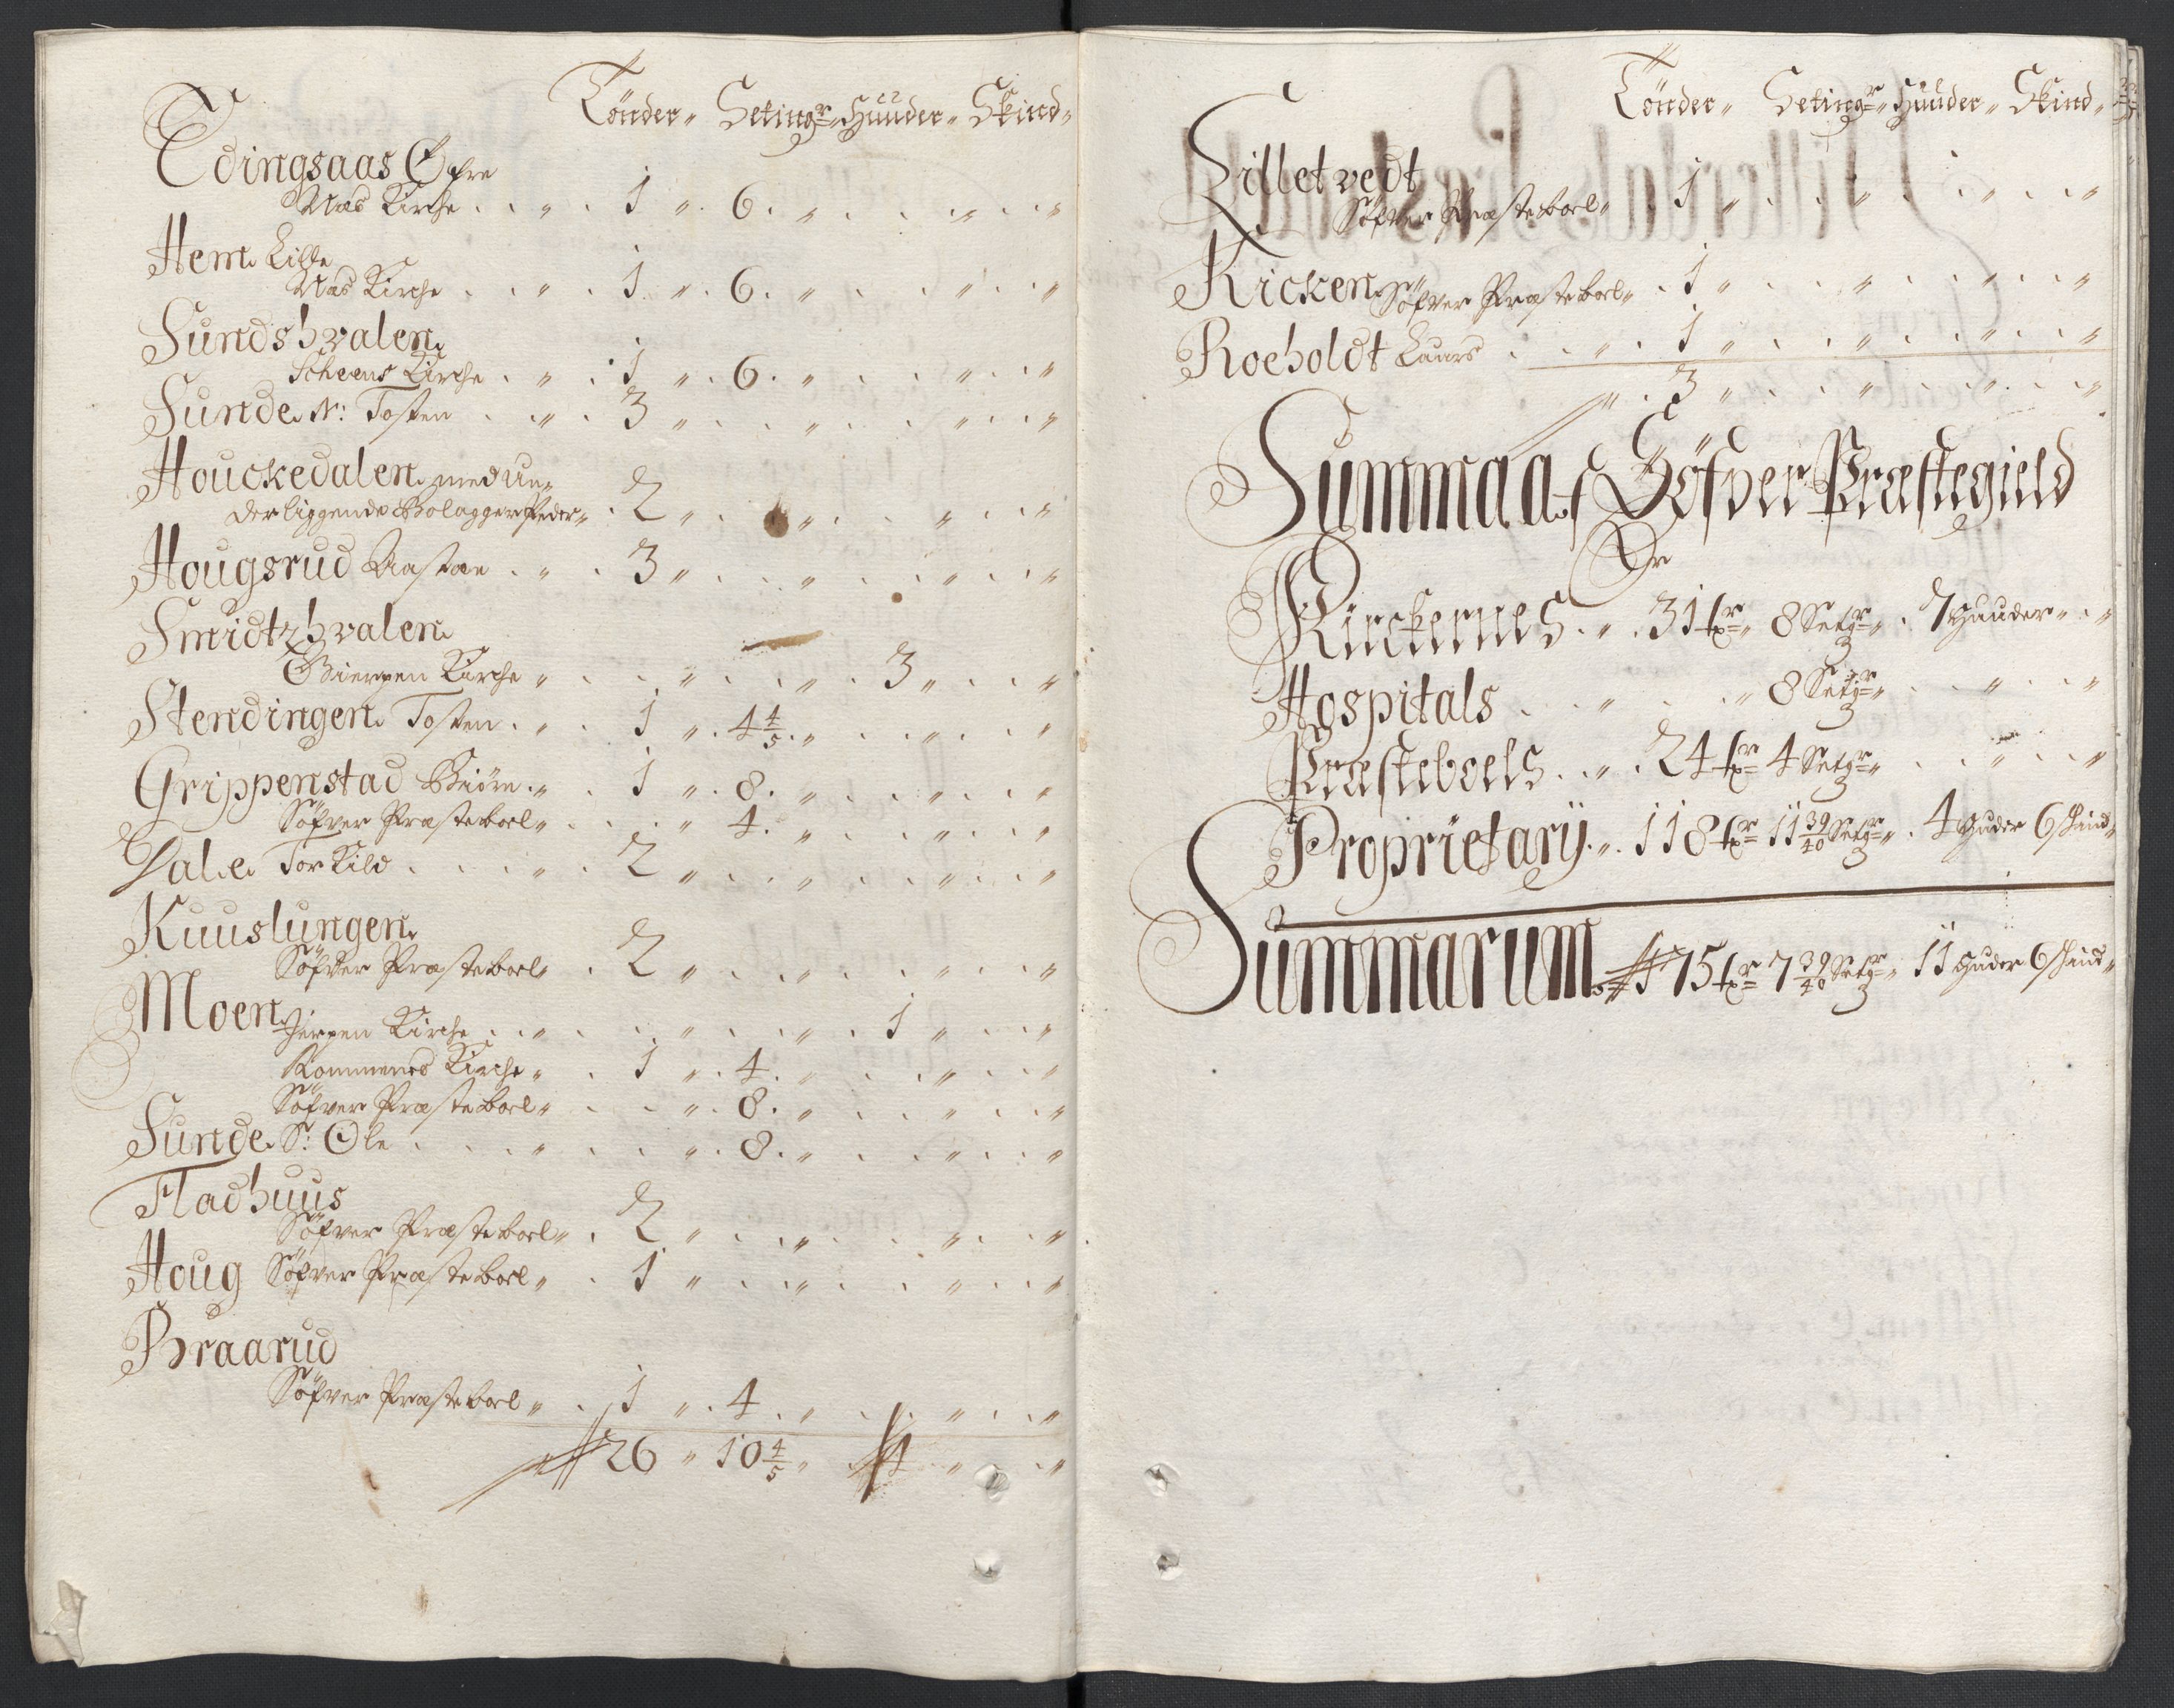 Tönder „ Setingr „ Huuder „ Skind „
Edingsaas Øfre
Næs Kirche . . „ . 1 „ . 6 . „ . . „ . . „
Hem Lille
Næs Kirche . . „ . 1 „ . 6 . „ . . „ . . „
Sundshvalen
Scheens Kirche . „ . 1 „ . 6 . „ . . „ . . „
Sunde N: Tosten . . „ . 3 „ . . „ . . „ . . „
Houckedalen med Un-
derliggende Bolagger Peder „ . 2 „ . . „ . . „ . . „
Hougsrud Aastae . „ . 3 „ . . „ . . „ . . „
Smidtzhvalen
Gierpen Kirche „ . . „ . . „ . 3 „ . . „
Stendingen Tosten . „ . 1 „ . 4 4/5 . „ . . „ . . „
Grippenstad Biörn . „ . 1 „ . 8 . „ . . „ . . „
Söfver Præsteboel „ . . „ . 4 . „ . . „ . . „
Dale Torkild . . . „ . 2 „ . . „ . . „ . . „
Kuuslungen
Söfver Præsteboel „ . 2 „ . . „ . . „ . . „
Moen Jerpen Kirche . . „ . . „ . . „ . 1 „ . . „
Rommenes Kirche „ . 1 „ . 4 . „ . . „ . . „
Söfver Præsteboel „ . . „ . 8 . „ . . „ . . „
Sunde S: Ole . . . „ . . „ . 8 . „ . . „ . . „
Fladhuus
Söfver Præsteboel „ . 2 „ . . „ . . „ . . „
Houg Söfver Præsteboel „ . 1 „ . . „ . . „ . . „
Braarud
Söfver Præsteboel „ . 1 „ . 4 . „ . . „ . . „
26 „ 10 4/5 „ . 4 „ . . „
Tönder „ Setingr „ Huuder „ Skind „
Lilletvedt
Söfver Præsteboel „ . 1 „ . . „ . . „ . . „
Kicken Söfver Præsteboel „ . 1 „ . . „ . . „ . . „
Roeholdt Laurs . . „ . 1 „ . . „ . . „ . . „
„ . 3 „ . . „ . . „ . . „
Summa af Söfver Præstegield
Er
Kirckernes . „ . 31 tr „ 8 Setgr „ . 7 Huuder „ . „
Hospitals . . „ . . „ 8 Setgr „ . . „ . . „
Præsteboels . . „ . 24 tr 4 Setgr „ . . „ . . „
Proprietary . „ . 118 tr 11 39/40 Setgr „ . 4 Huder 6 skind „
Summarum 175 tr 7 39/40 Setgr „ 11 Huder 6 skind „